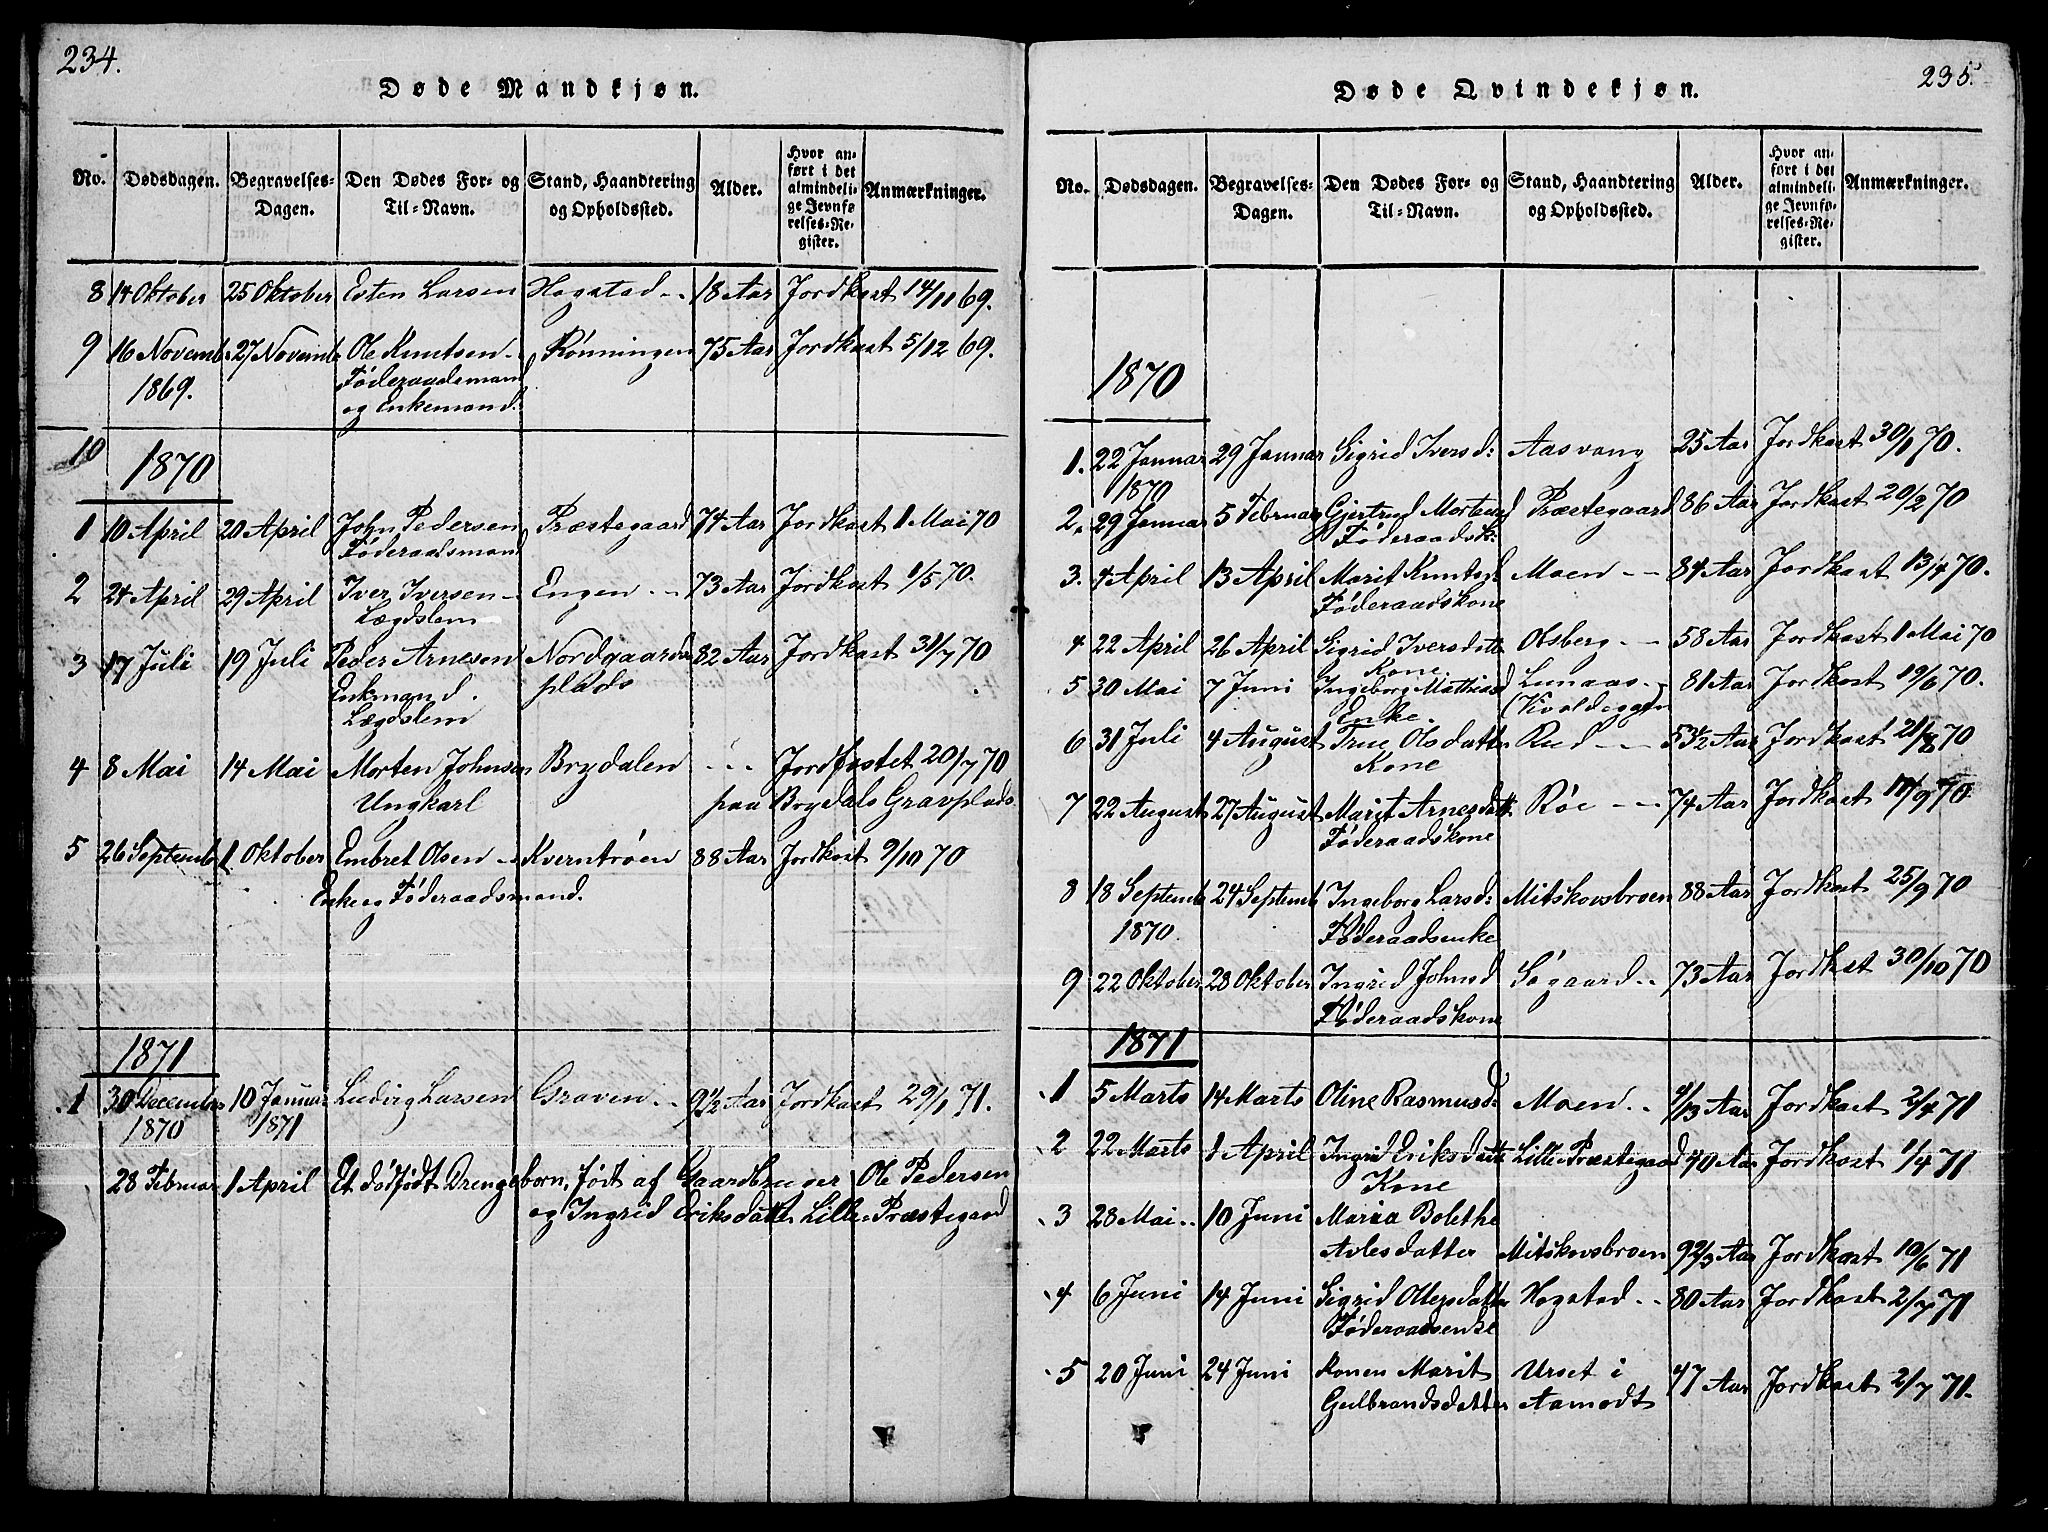 234.
Døde Mandkjøn.
No. Dødsdagen. Begravelses-Dagen. Den Dødes For- og Til-Navn. Stand, Haandtering og Opholdssted. Alder. Hvor anført i det almindelige Jevnførelses-Register. Anmærkninger.
8 14 Oktober 25 Oktober Esten Larsen Hogstad -- 18 Aar Jordkast 14/11 69.
9 16 Novemb. 27 Novemb Ole Knutsen - Rønningen 75 Aar Jordkast 5/12 69.
1869. Føderaadsmand
og Enkemand.
10
1870
1 10 April 20 April John Pedersen Præstegaard 74 Aar Jordkast 1 Mai 70
Føderaadsmand
2 24 April 29 April Iver Iversen - Engen -- 73 Aar Jordkast 1/5 70.
Lægdslem
3 17 Juli 19 Juli Peder Arnesen Nordgaards 82 Aar Jordkast 31/7 70
Enkmand. plads
Lægdslem
4 8 Mai 14 Mai Morten Johnsen Brydalen - - - Jordfæstet 20/7 70
Ungkarl paa Brydals Gravplads.
5 26 Septemb 1 Oktober Embret Olsen - Kverntrøen 88 Aar Jordkast 9/10 70
Enke og Føderaadsmand.
1871
1 30 December 10 Januar Ludvig Larsen Graven -- 9 1/2 Aar Jordkast 29/1 71.
1870 1871
28 Februar 1 April Et dødfødt Drengeborn, født af Gaardbruger Ole Pedersen
og Ingrid Eriksdatter Lille-Præstegaard
235.
Døde Qvindekjøn.
No. Dødsdagen. Begravelses-Dagen. Den Dødes For- og Til-Navn. Stand, Haandtering og Opholdssted. Alder. Hvor anført i det almindelige Jevnførelses-Register. Anmærkninger.
1870
1. 22 Januar 29 Januar Sigrid Iversd: Aasvang 25 Aar Jordkast 30/1 70.
1870
2. 29 Januar 5 Februar Gjertrud Mortensd Præstegaard 86 Aar Jordkast 20/2 70
Føderaadsk:
3. 4 April 13 April Marit Knutsd Moen -- 84 Aar Jordkast 13/4 70.
Føderaadskone
4 22 April 26 April Sigrid Iversdtt Olsberg -- 58 Aar Jordkast 1 Mai 70
Kone
5 30 Mai 7 Juni Ingeborg Mathiasd Lunaas - 81 Aar Jordkast 19/6 70.
Enke. (Kvoldeggen)
6 31 Juli 4 August True Olsdatter Rud -- 53 1/2 Aar Jordkast 21/8 70
Kone
7 22 August 27 August Marit Arnesdatt Røe -- 74 Aar Jordkast 11/9 70.
Føderaadskone
8 18 Septemb 24 Septemb Ingeborg Larsd: Mitskovsbroen 88 Aar Jordkast 25/9 70
1870. Føderaadsenke
9 22 Oktober 28 Oktober Ingrid Johnsd Søgaard -- 73 Aar Jordkast 30/10 70
Føderaadskone
1871
1 5 Marts 14 Marts Oline Rasmusd: Moen -- 1/3 Aar Jordkast 2/4 71
2 22 Marts 1 April Ingrid Eriksdatt Lille Præstegaard 40 Aar Jordkast 1/4 71
Kone
3 28 Mai -- 10 Juni Maria Bolethe
Avlesdatter Mitskovsbroen 9 2/3 Aar Jordkast 10/6 71
4 6 Juni 14 Juni Sigrid Olersdatter Hogstad -- 80 Aar Jordkast 2/7 71
Føderaadsenke
5 20 Juni 24 Juni Konen Marit Urset i 47 Aar Jordkast 2/7 71.
Gulbrandsdatter Aamodt